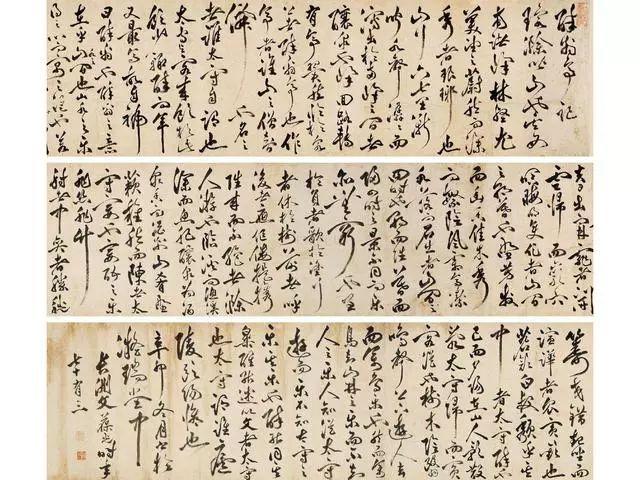 醉翁亭記
環滁皆山也其西
南諸峰林壑尤
美望之蔚然而深
秀者琅琊也
山行六七里漸
聞水聲潺潺而
瀉出於兩峰之間者
釀泉也峰回路轉
有亭翼然臨於泉
上者醉翁亭也作
亭者誰山之僧智
僊也名之
者誰太守自謂也
太守與客來飲於此
飲少輒醉而年
又最高故自號
曰醉翁也醉翁之意
在乎山水之間也山水之樂
得之心而寓之酒也若
夫日出而林霏開
雲歸而巖穴
暝晦明變化者山間
之朝暮也野芳發
而幽香佳木秀
而繁陰風霜高潔
水落而石出者山間之
四時也朝而往暮而
歸四時之景不同而樂
亦無窮也至
於負者歌於塗行
者休於樹前者呼
後者應傴僂提攜
往來而不絕者滁
人遊也臨溪而漁溪
深而魚肥釀泉為酒
泉香而酒洌山肴野
蔌雜然而前陳者太
守宴也宴酣之樂
非絲非竹
射者中奕者勝觥
籌交錯起坐而
諠譁者衆賓歡也
蒼顏白髮頹然乎其
中者太守醉也
已而夕陽在山人影散
亂太守歸而賓
客從也樹木陰翳
鳴聲上下遊人去
而禽鳥樂也然而禽
鳥知山林之樂而不知
人之樂人知從太守
遊而樂不知太守之
樂其樂也醉能同其
樂醒能述以文者太守
也太守謂誰廬
陵歐陽修也
辛卯冬月書於
凝瑞堂中
長洲文葆光時年
七十有三